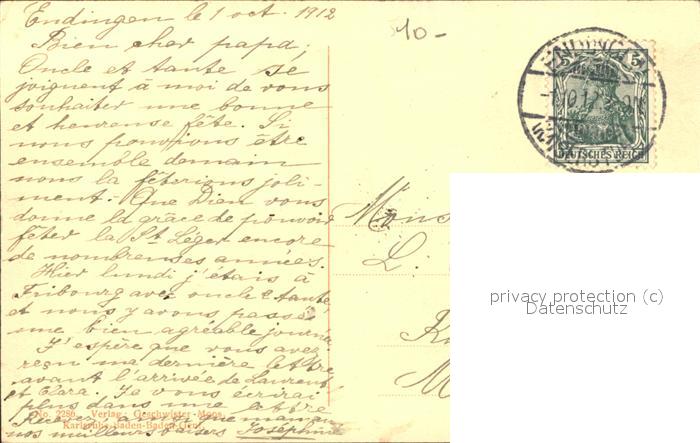 Endingen le 1 oct. 1912
Bien cher papa,
Oncle et tante se
joignent à moi de vous
souhaiter une bonne
et heureuse fête. Si
nous pouvions être
ensemble demain
nous la fêterions joli-
ment. Que Dieu vous
donne la grâce de pouvoir
fêter la St Léger encore
de nombreuses années.
Hier lundi j'étais à
Fribourg avec oncle et tante
et nous y avons passé
une bien agréable journée
J'espère que vous avez
reçu ma dernière lettre
avant l'arrivée de Laurent
et Clara. Je vous écrirai
plus dans une lettre
Recevez ainsi que maman
nos meilleurs baisers Joséphine
No. 2286. Verlag Geschwister Moos
Karlsruhe-Baden-Baden-Genf.
10-
ENDINGEN
5 5
DEUTSCHES REICH
Mons
L.
privacy protection (c)
Datenschutz